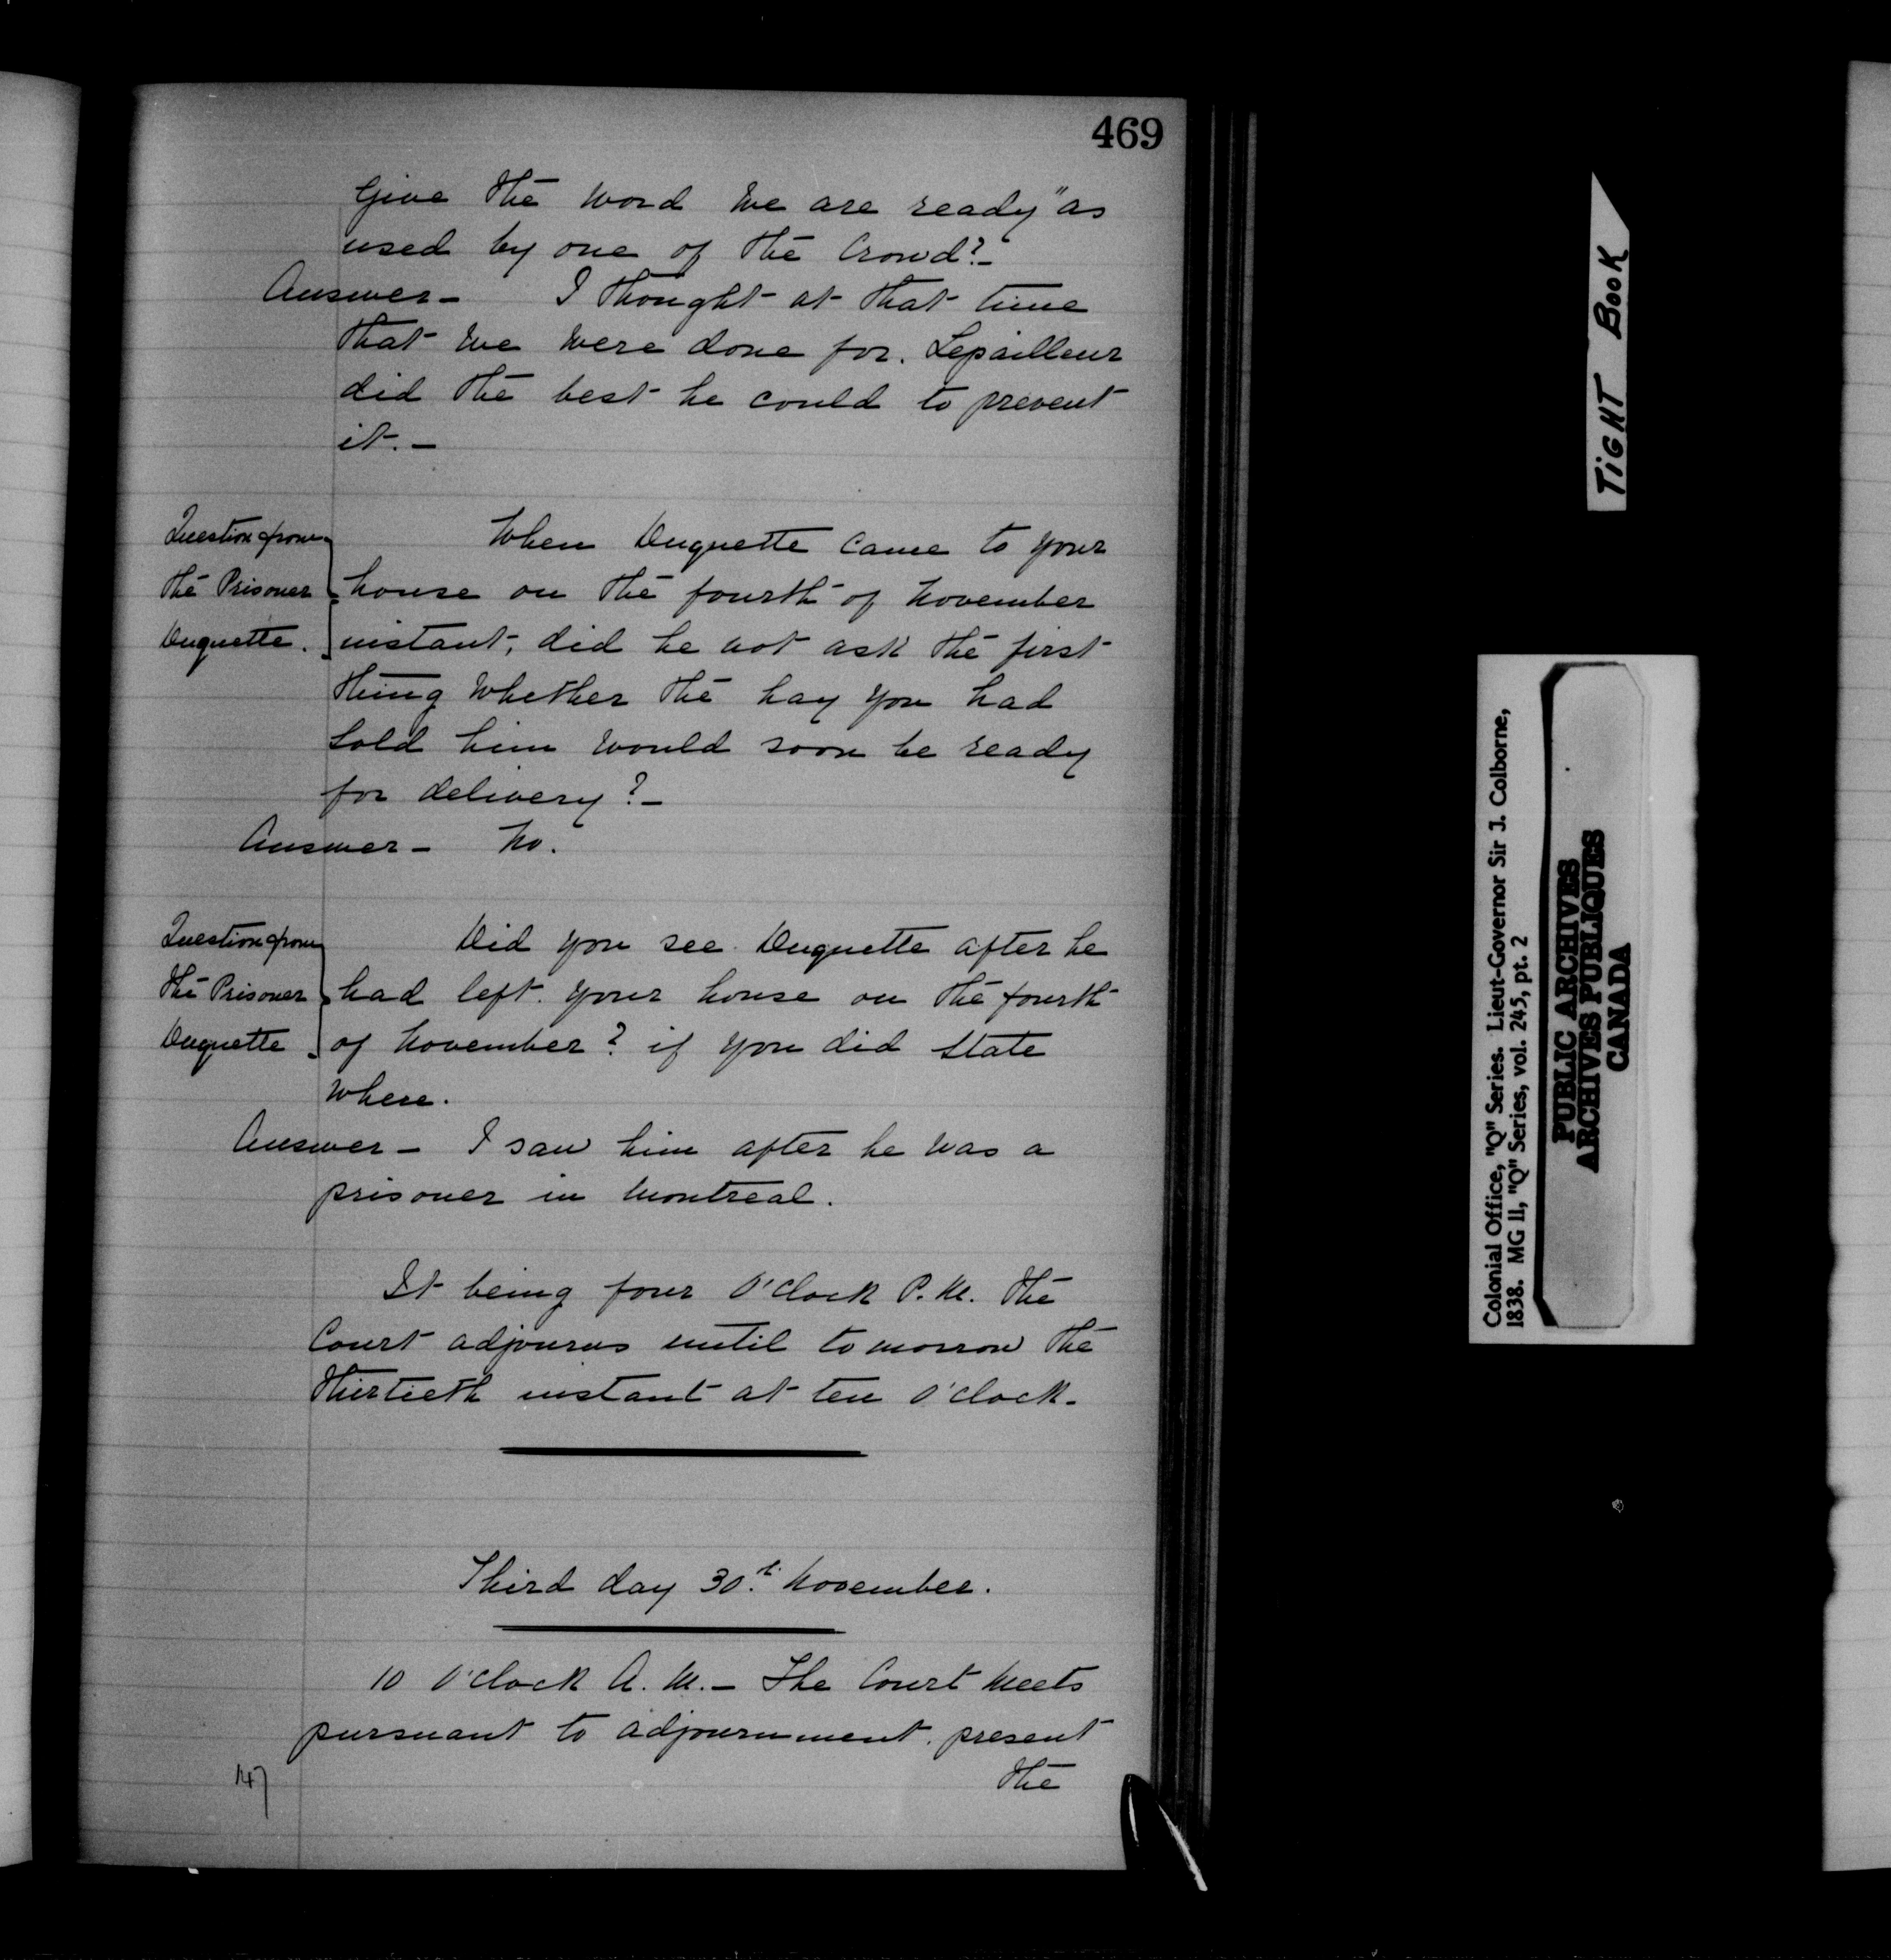 469
Give the word we are ready" as
used by one of the Crowd?-
Answer- I thought at that time
that we were done for. Lepailleur
did the best he could to prevent
it.-
Question from
the Prisoner
Duquette.
When Duquette came to your
house on the fourth of November
instant, did he not ask the first
thing whether the hay you had
sold him would soon be ready
for delivery?-
Answer- No.
Question from
the Prisoner
Duquette
Did you see Duquette after he
had left your house on the fourth
of November? if you did state
where.
Answer- I saw him after he was a
prisoner in Montreal.
It being four O'Clock P.M. the
Court adjourns until tomorrow the
thirtieth instant at ten O'Clock.
Third day 30th November.
10 O'Clock A.M.- The Court meets
pursuant to adjournment. present
the
147
TIGHT BOOK
Colonial Office, "Q" Series. Lieut-Governor Sir J. Colborne,
1838. MG 11, "Q" Series, vol. 245, pt. 2
PUBLIC ARCHIVES
ARCHIVES PUBLIQUES
CANADA